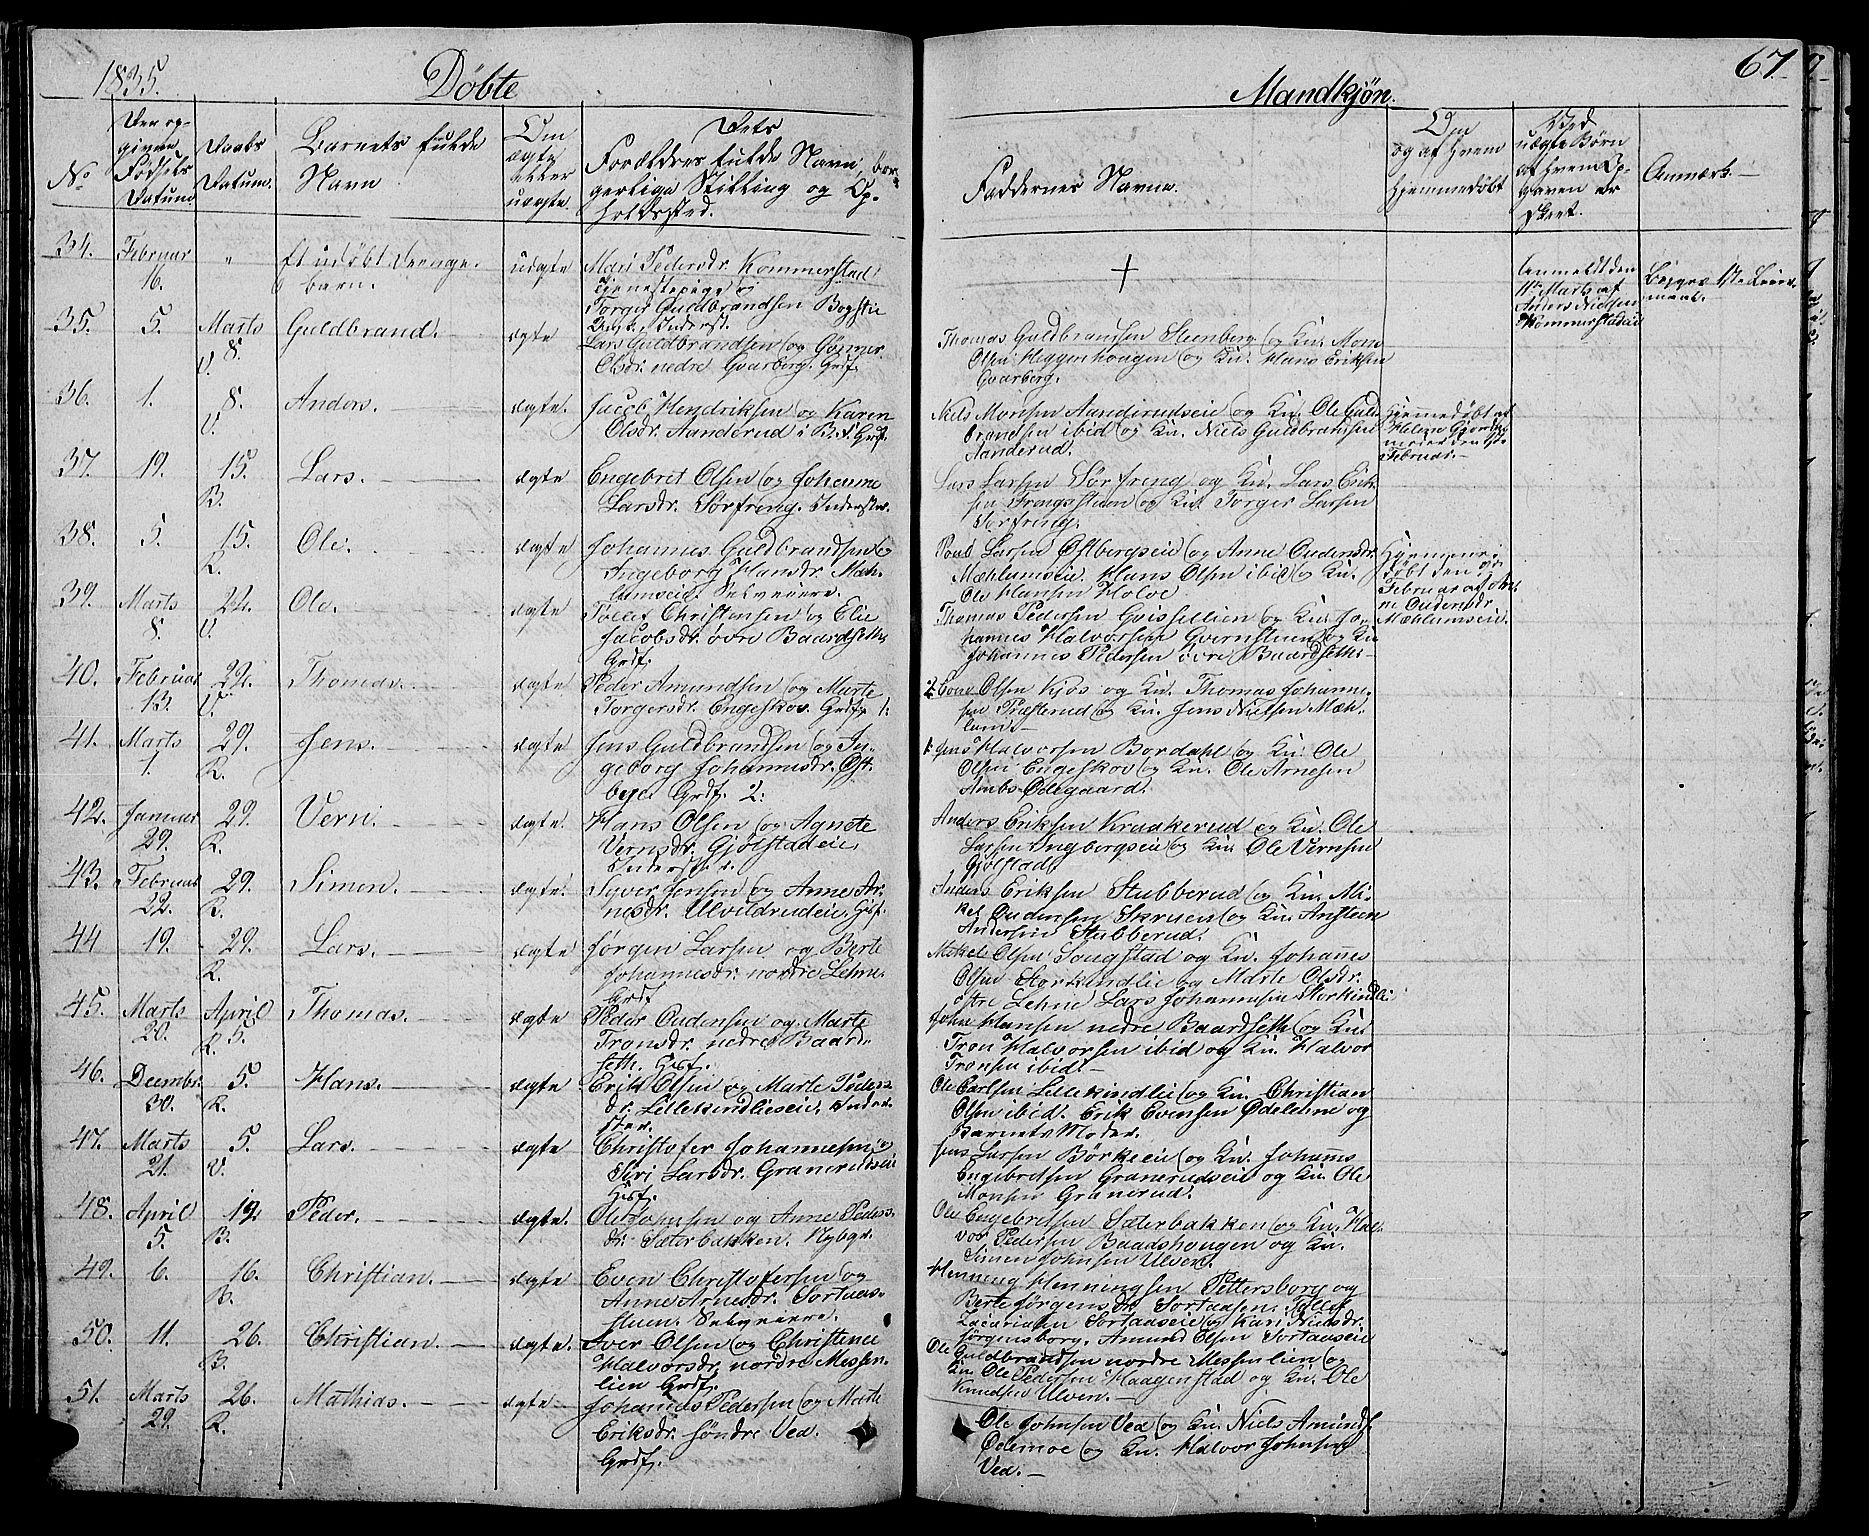 1835. Døbte Mandkjøn. 67
No
Den op-
givne
Fødsels
Datum
Daabs
Datum.
Barnets fulde
Navn
Om
ægte
eller
uægte.
Dets
Forældres fulde Navn, bor-
gerlige Stilling og Op-
holdssted.
Faddernes Navne.
Om
og af hvem
hjemmedøbt
Ved
uægte Børn
af hvem Op-
gaven er
skeet.
Anmærk.
34. Februar 16. " Et udøbt Drenge-
barn. uægte Mari Pedersdr. Kommerstad
Tjenestepige og
Torger Guldbrandsen Bogstie
Anmeldt den
Marts af
Kommerstadeie
35. 5. Marts 8. V. Guldbrand. ægte
Lars Guldbrandsen og Gønner
Olsdr. nedre Gvarberg. Grdf.
Thomas Guldbrandsen Steenberg og Kn. Mons
Olsen Heggenhougen og Kn. Hans Eriksen
Gvarberg.
36. 1. 8. V. Anders. ægte. Jacob Hendriksen og Karen
Olsdr. Aanderud i B.
Niels Monsen Aanderudseie og Kn. Ole Guld-
brandsen ibid og Kn. Niels Guldbrandsen
Aanderud.
Hjemmedøbt af
Februar.
37. 19. 15. B. Lars. ægte Engebret Olsen og Johanne
Larsdr. Sørfreng. Inderster.
Lars Larsen Sørfreng og Kn. Lars Erik-
sen Frengsstuen og Kn. Torger Larsen
Sørfreng.
38. 5. 15. R. Ole. ægte Johannes Guldbrandsen og
Ingeborg Hansdr. Mæh-
lumseie. Selveiere.
Poul Larsen Østbergseie og Anne Oudensdr.
Mæhlumseie. Hans Olsen ibid og Kn.
Ole Hansen Holve
Hjemme-
døbt den
Februar af An-
ne Oudensdr.
Mæhlumseie.
39. Marts 8. 22. V. Ole. ægte Tollef Christensen og Elie
Jacobsdr. øvre Baardseth.
Grdf.
Thomas Pedersen Gvissellien og Kn. Jo-
hannes Halvorsen Gvernstuen og Kn
Johannes Pedersen øvre Baardseth.
40. Februar 13. 22. V. Thomas. ægte Peder Amundsen og Marte
Torgersdr. Engeskov. Grdf. 1:
2. Olsen Kjos og Kn. Thomas Johanne-
sen Præsterud og Kn. Jens Nielsen Mæh-
lum.
41. Marts 1. 29. R. Jens. ægte Jens Guldbrandsen og In-
geborg Johannesdr. Øst-
byei Grdf. 2:
1. Jens Halvorsen Bordahl og Kn. Ole
Olsen Engeskov og Kn. Ole Arnesen
Ambs Ødegaard.
42. Januar 29. 29. R. Vern. ægte. Hans Olsen og Agnete
Vernsdr. Gjølstadeie,
Inderster.
Anders Eriksen Kraakerud og Kn. Ole
Larsen Ingbergseie og Kn. Ole Vernsen
Gjølstad.
43. Februar 22. 29. R. Simen. ægte. Syver Jensen og Anne Ar-
nesdr. Ulvildrudeie. Hsf.
Anders Eriksen Stubberud og Kn. Mi-
kel Oudensen Skruen og Kn. Ansteen
Andersen Stubberud.
44 19. 29. R. Lars. ægte Jørgen Larsen og Berte
Johannesdr. nordre Lehne.
Grdf
Mikel Olsen Sougstad og Kn. Johannes
Olsen Storkindlie og Marte Olsdr.
østre Lehne Lars Johannesen Storkindlie
45. Marts 20. April 5. R. Thomas. ægte Peder Oudensen og Marte
Tronsdr. nedre Baard-
seth. Hsf.
John Hansen nedre Baardseth og Kn.
Tron Halvorsen ibid og Kn. Halvor
Tronsen ibid
46. Decembr. 30. 5. R. Hans. ægte Erik Olsen og Marte Peders-
dr. Lillekindlieseie. Inder-
ster.
Ole Carlsen Lillekindlie og Kn. Christian
Olsen ibid. Erik Evensen Ødelehne og
Barnets Moder.
47. Marts 21. 5. V. Lars. ægte Christofer Johannesen og
Siri Larsdr. Granerudseie
Hsf.
Jens Larsen Børkeeie og Kn. Johannes
Engebretsen Granerudseie og Kn. Ole
Monsen Granerud.
48. April 5. 19. B. Peder. ægte. Ole Johnsen og Anne Peders-
dr. Sæterbakken. Nybgr.
Ole Engebretsen Sæterbakken og Kn. Hal-
vor Pedersen Baadshougen og Kn.
Simen Johnsen Ulven.
49. 6. 16. B. Christian. ægte Even Christofersen og
Anne Arnesdr. Sortaas-
stuen. Selveiere.
Henning Henningsen Pettersborg og
Berte Jørgensdr. Sortaasen. Tollef
Zacariasen Sortaaseie og Kari Nielsdr.
Jørgensborg. Amund Olsen Sortaaseie
50. 11. 26. B. Christian. ægte. Iver Olsen og Christence
Halvorsdr. nordre Messen-
lien Grdf.
Ole Guldbrandsen nordre Messenlien og
Kn. Ole Pedersen Haagenstad og Kn. Ole
Knudsen Ulven.
51. Marts 29. 26. R. Mathias. ægte. Johannes Pedersen og Marte
Eriksdr. søndre Ved.
Grdf.
Ole Johnsen Ved og Kn. Niels Amunds
Ødemoe og Kn. Halvor Johnsen
Ved.